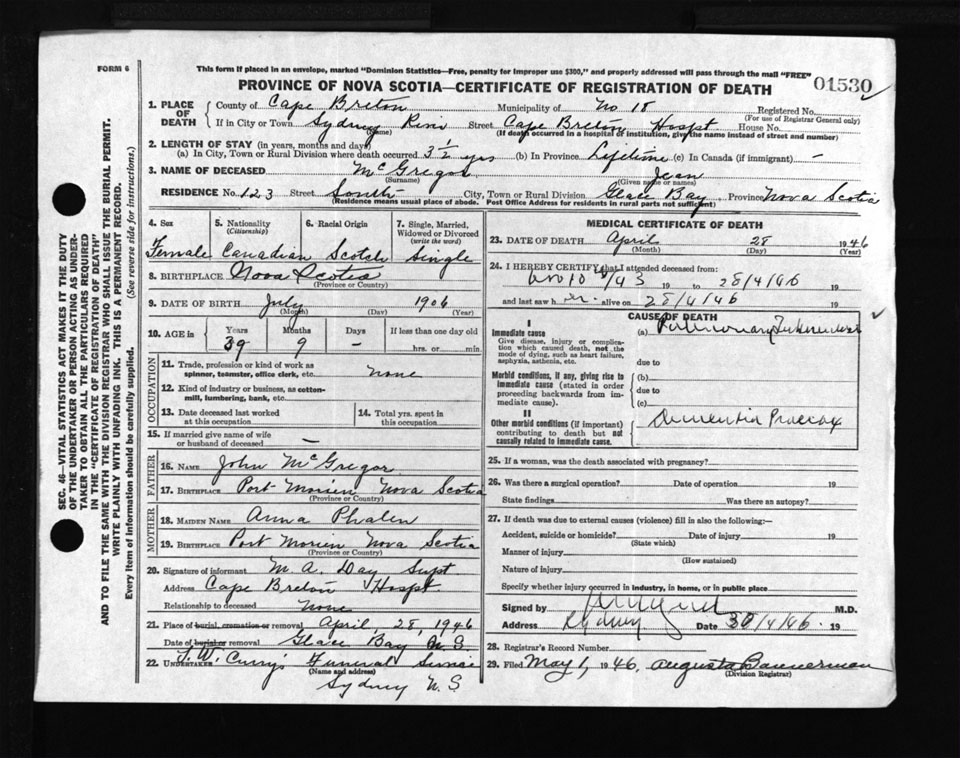 FORM 6
This form if placed in an envelope, marked "Dominion Statistics—Free, penalty for improper use $300," and properly addressed will pass through the mail "FREE"
PROVINCE OF NOVA SCOTIA—CERTIFICATE OF REGISTRATION OF DEATH
01530
SEC. 46—VITAL STATISTICS ACT MAKES IT THE DUTY
OF THE UNDERTAKER OR PERSON ACTING AS UNDER-
TAKER TO OBTAIN ALL THE PARTICULARS REQUIRED
IN THE "CERTIFICATE OF REGISTRATION OF DEATH"
AND TO FILE THE SAME WITH THE DIVISION REGISTRAR WHO SHALL ISSUE THE BURIAL PERMIT.
WRITE PLAINLY WITH UNFADING INK. THIS IS A PERMANENT RECORD.
Every item of information should be carefully supplied. (See reverse side for instructions.)
1. PLACE OF DEATH
County of Cape Breton Municipality of No 18 Registered No.
(For use of Registrar General only)
If in City or Town Sydney River Street Cape Breton Hospt. House No.
(Name) (If death occurred in a hospital or institution, give the name instead of street and number)
2. LENGTH OF STAY (in years, months and days)
(a) In City, Town or Rural Division where death occurred 3½ yrs (b) In Province Lifetime (c) In Canada (if immigrant) —
3. NAME OF DECEASED McGregor Jean
(Surname) (Given name or names)
RESIDENCE No. 123 Street South City, Town or Rural Division Glace Bay Province Nova Scotia
(Residence means usual place of abode. Post Office Address for residents in rural parts not sufficient)
4. Sex
Female
5. Nationality
(Citizenship)
Canadian
6. Racial Origin
Scotch
7. Single, Married, Widowed or Divorced
(write the word)
Single
8. BIRTHPLACE Nova Scotia
(Province or Country)
9. DATE OF BIRTH July 1906
(Month) (Day) (Year)
10. AGE in
Years Months Days If less than one day old
39 9 — hrs. or min.
OCCUPATION
11. Trade, profession or kind of work as spinner, teamster, office clerk, etc. none
12. Kind of industry or business, as cotton-mill, lumbering, bank, etc.
13. Date deceased last worked at this occupation
14. Total yrs. spent in this occupation
15. If married give name of wife or husband of deceased —
FATHER
16. NAME John McGregor
17. BIRTHPLACE Port Morien Nova Scotia
(Province or Country)
MOTHER
18. MAIDEN NAME Anna Phalen
19. BIRTHPLACE Port Morien Nova Scotia
(Province or Country)
20. Signature of informant M. A. Day Supt
Address Cape Breton Hospt.
Relationship to deceased None
21. Place of burial, cremation or removal April, 28, 1946
Date of burial or removal Glace Bay N.S.
22. UNDERTAKER T.W. Curry's Funeral Service
(Name and address)
Sydney N.S
MEDICAL CERTIFICATE OF DEATH
23. DATE OF DEATH April 28 1946
(Month) (Day) (Year)
24. I HEREBY CERTIFY that I attended deceased from:
19 to 28/4/46 19
and last saw her alive on 28/4/46 19
CAUSE OF DEATH
I
Immediate cause
Give disease, injury or complication which caused death, not the mode of dying, such as heart failure, asphyxia, asthenia, etc.
(a) Pulmonary Tuberculosis
due to
Morbid conditions, if any, giving rise to immediate cause (stated in order proceeding backwards from immediate cause).
(b)
due to
(c)
II
Other morbid conditions (if important) contributing to death but not causally related to immediate cause.
Dementia Praecox
25. If a woman, was the death associated with pregnancy?
26. Was there a surgical operation? Date of operation 19
State findings Was there an autopsy?
27. If death was due to external causes (violence) fill in also the following:
Accident, suicide or homicide? Date of injury 19
(State which)
Manner of injury
(How sustained)
Nature of injury
Specify whether injury occurred in industry, in home, or in public place
Signed by M.D.
Address Sydney Date 30/4/46. 19
28. Registrar's Record Number
29. Filed May 1, 1946, Augusta Bannerman
(Division Registrar)